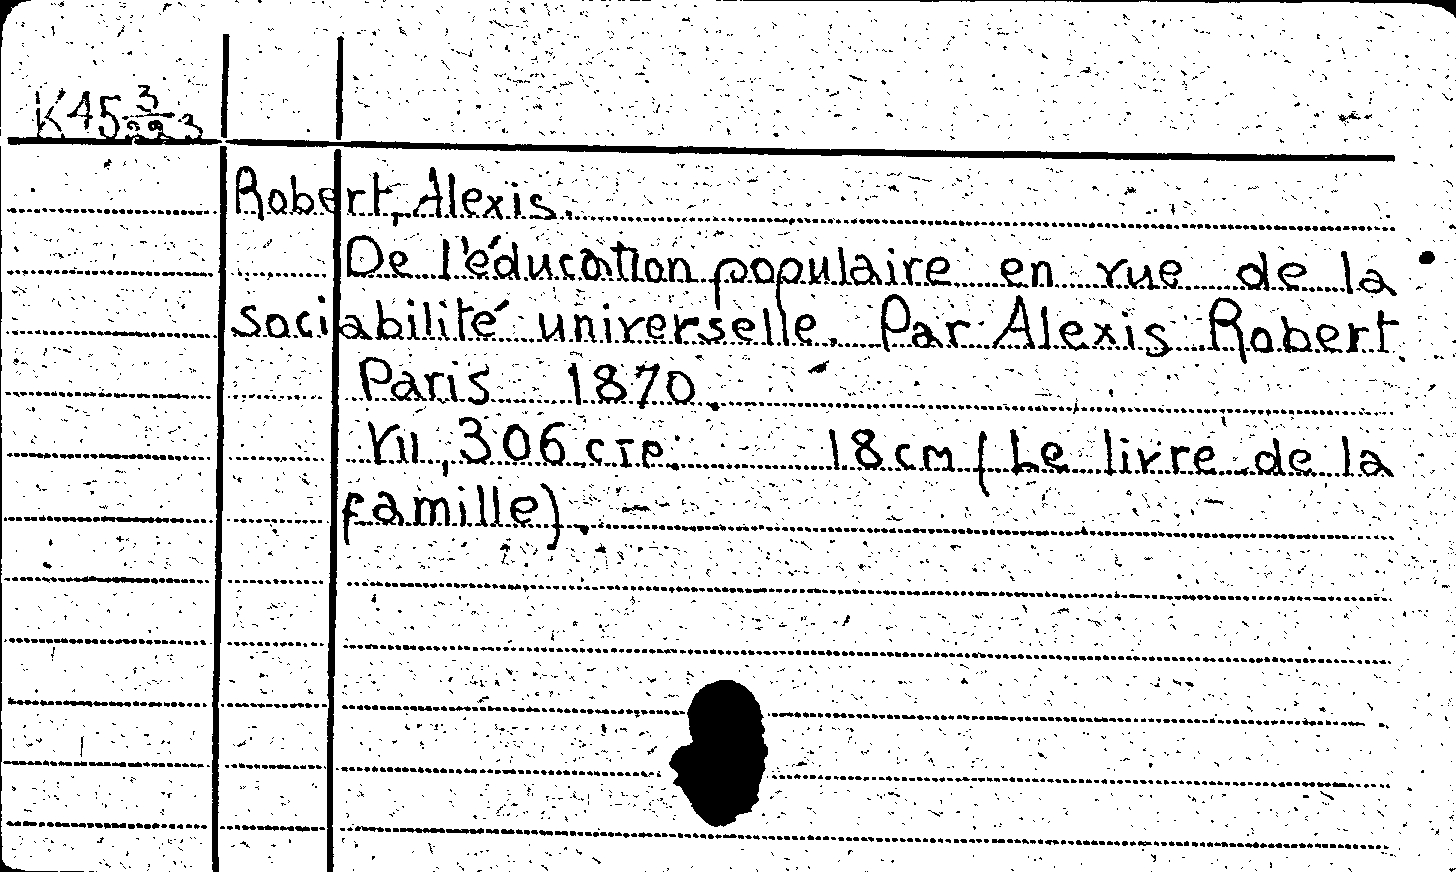 K45 3/22 3
Robert, Alexis.
De l'éducation populaire en vue de la
sociabilité universelle. Par Alexis Robert.
Paris 1870.
VII, 306 стр. 18cm (Le livre de la
famille).